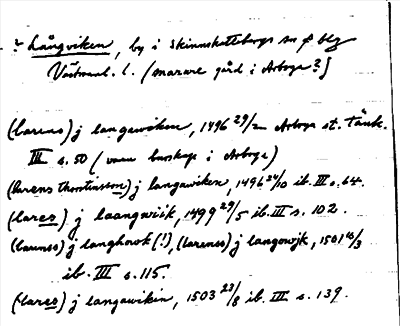 ? Långviken, by i Skinnskattebergs sn o blg
Västmanl. l. (snarare gård i Arboga?)
(larens) j langawiken, 1496 29/2 Arboga st. tänk.
III s. 50 (vann burskap i Arboga)
(larens thorstinsson) j langawiken, 1496 24/10 ib. III s. 64.
(lares) j laangwiik, 1499 29/5 ib. III s. 102.
(laurens) j langhwok (!), (larenss) j langowjk, 1501 15/3
ib. III s. 115.
(lares) j langawikin, 1503 23/8 ib. III s. 139.